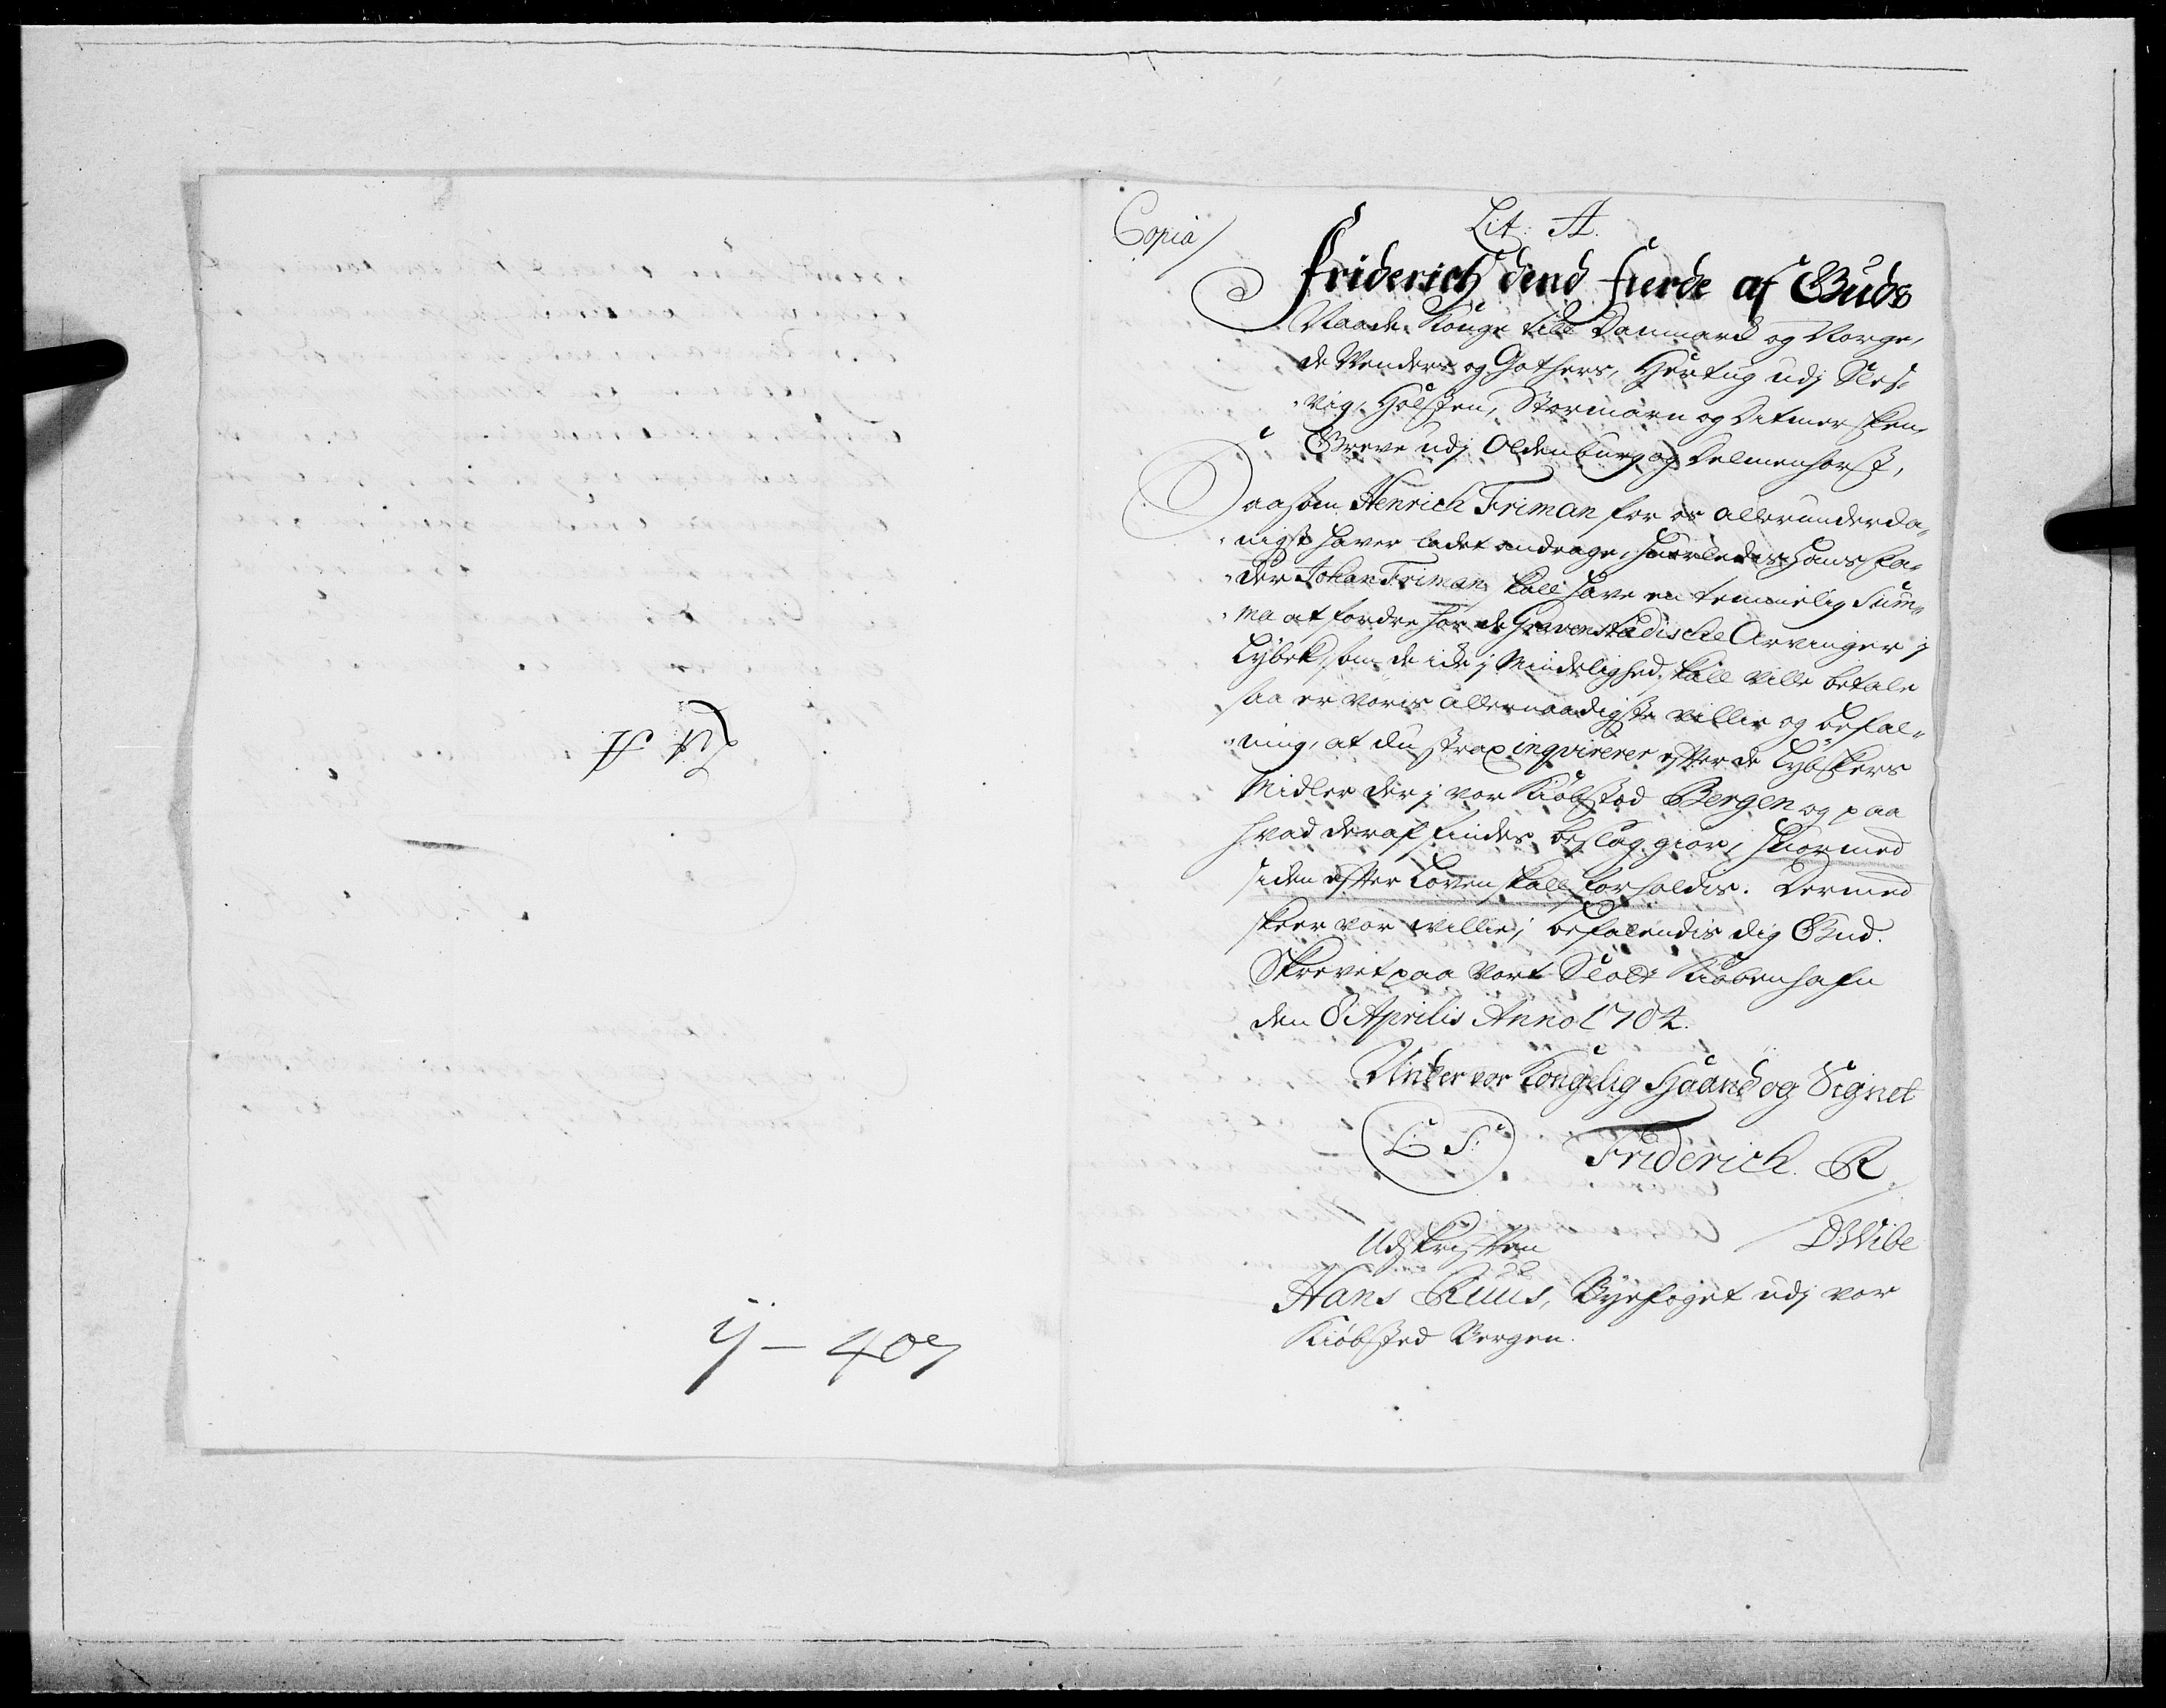 Lit A
y - 407
Copia/
Lit: A.
Friderich dend fierde af Guds
Naade Konge till Danmarck og Norge,
de Venders og Gothers, Hertug udj Sles-
vig, Holsten, Stormarn og Ditmersken,
Greve udj Oldenburg og Delmenhorst,
Saasom Henrich Friman for os allerunderda-
nigst haver ladet andrage, huorledes hans Fa-
der Johan Friman skall have en temmelig Sum-
ma at fordre hos de Gravenstædische Arvinger j
Lybek, som de icke j Mindelighed skall ville betale
saa er voris allernaadigste villie og befal-
ning, at du strax inqvirerer efter de Lybskers
Midler der j vor Kiøbstad Bergen og paa
hvad deraf findes, beslag giør, huormed
siden efter Loven skall forholdes. Dermed
skeer vor willie; befalendis dig Gud.
Skrevet paa vort Slott Kiøbenhafn
den 8 Aprilis Anno 1704.
Under vor Kongelig Haand og Signet
L: S: Friderich. R
/ D: Wibe
Udskrifften
Hans Ruus, Byefoget udj vor
Kiøbsted Bergen.